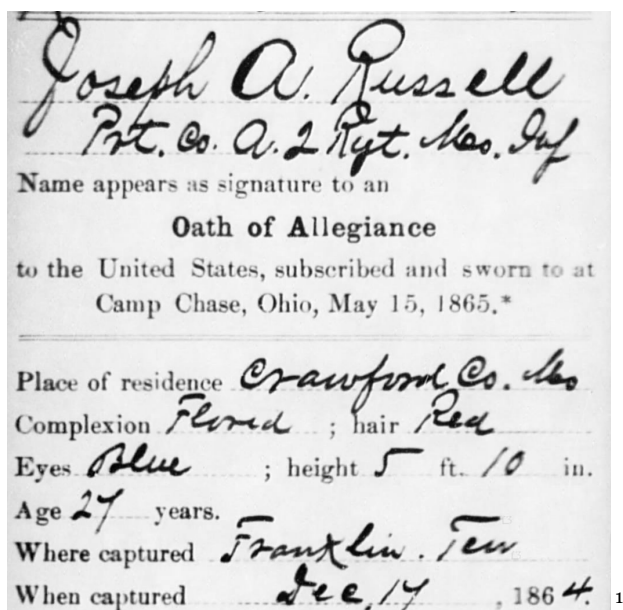 Joseph A. Russell
Pvt. Co. A. 2 Regt. Mo. Inf
Name appears as signature to an
Oath of Allegiance
to the United States, subscribed and sworn to at
Camp Chase, Ohio, May 15, 1865.*
Place of residence Crawford Co. Mo
Complexion Florid ; hair Red
Eyes Blue ; height 5 ft. 10 in.
Age 27 years.
Where captured Franklin. Ten
When captured Dec, 17, 1864. 1